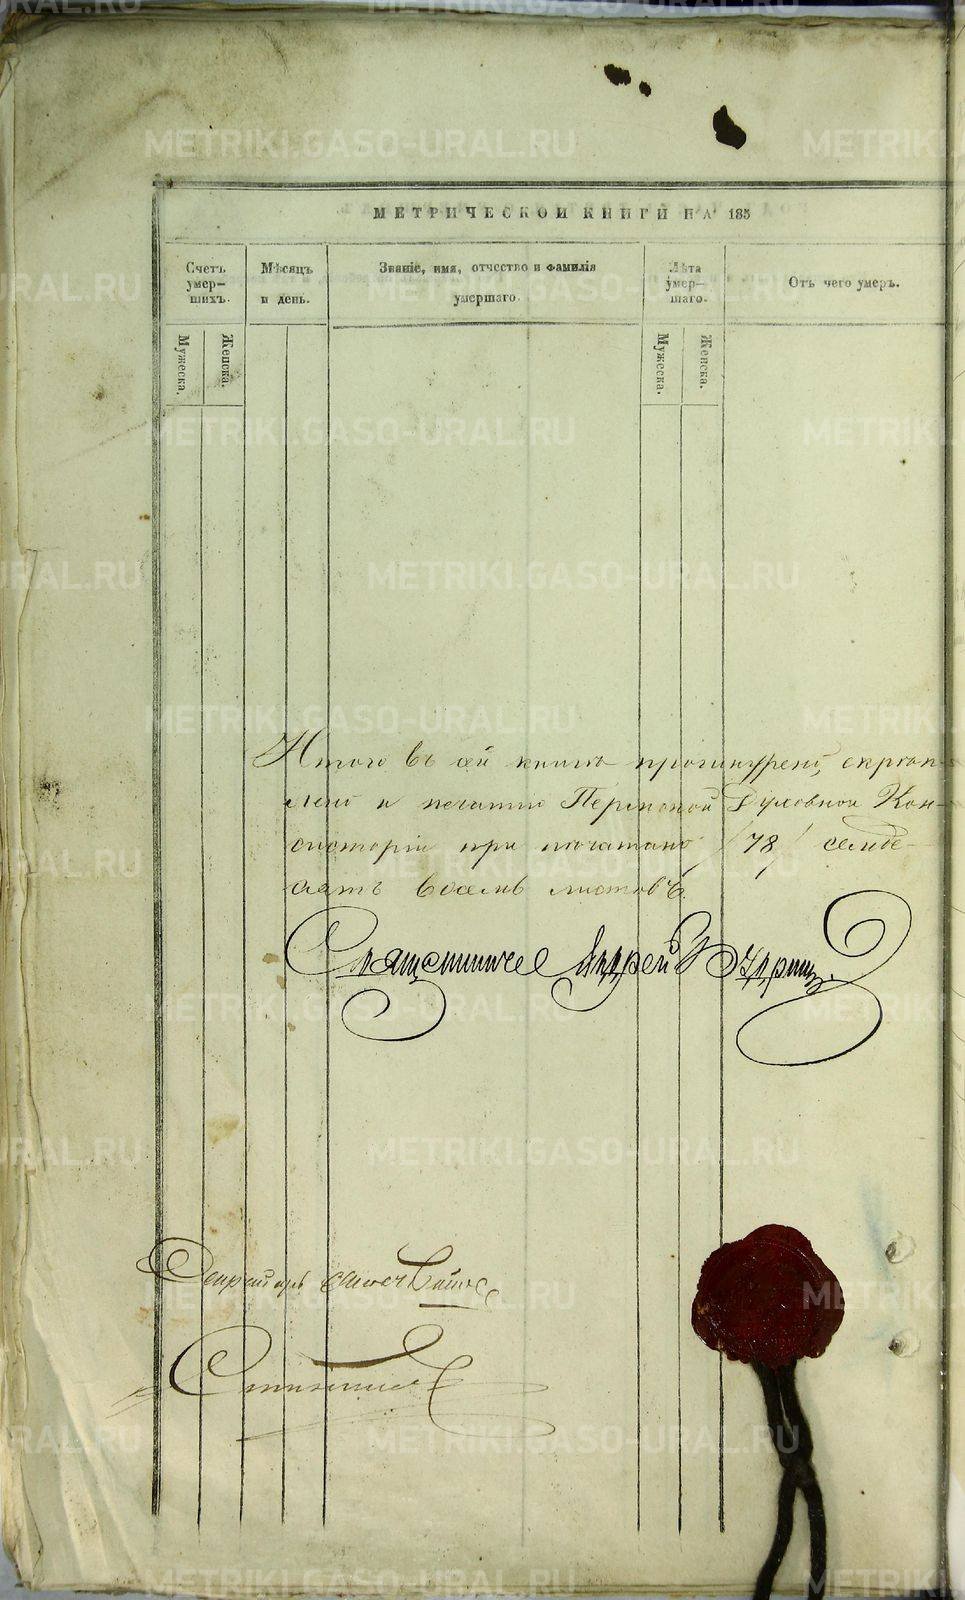 МЕТРИЧЕСКОЙ КНИГИ НА 185
Счетъ умер-шихъ.
Мѣсяцъ и день.
Званіе, имя, отчество и фамилія умершаго.
Лѣта умер-шаго.
Отъ чего умеръ.
Мужеска.
Женска.
Мужеска.
Женска.
Итого въ сей книгѣ прошнурен, скрѣп-
лен и печатью Пермской Духовной Кон-
систоріи при печатано /78/ семде-
сятъ восемь листовъ
Священникъ Андрей
Секретарь
METRIKI.GASO-URAL.RU